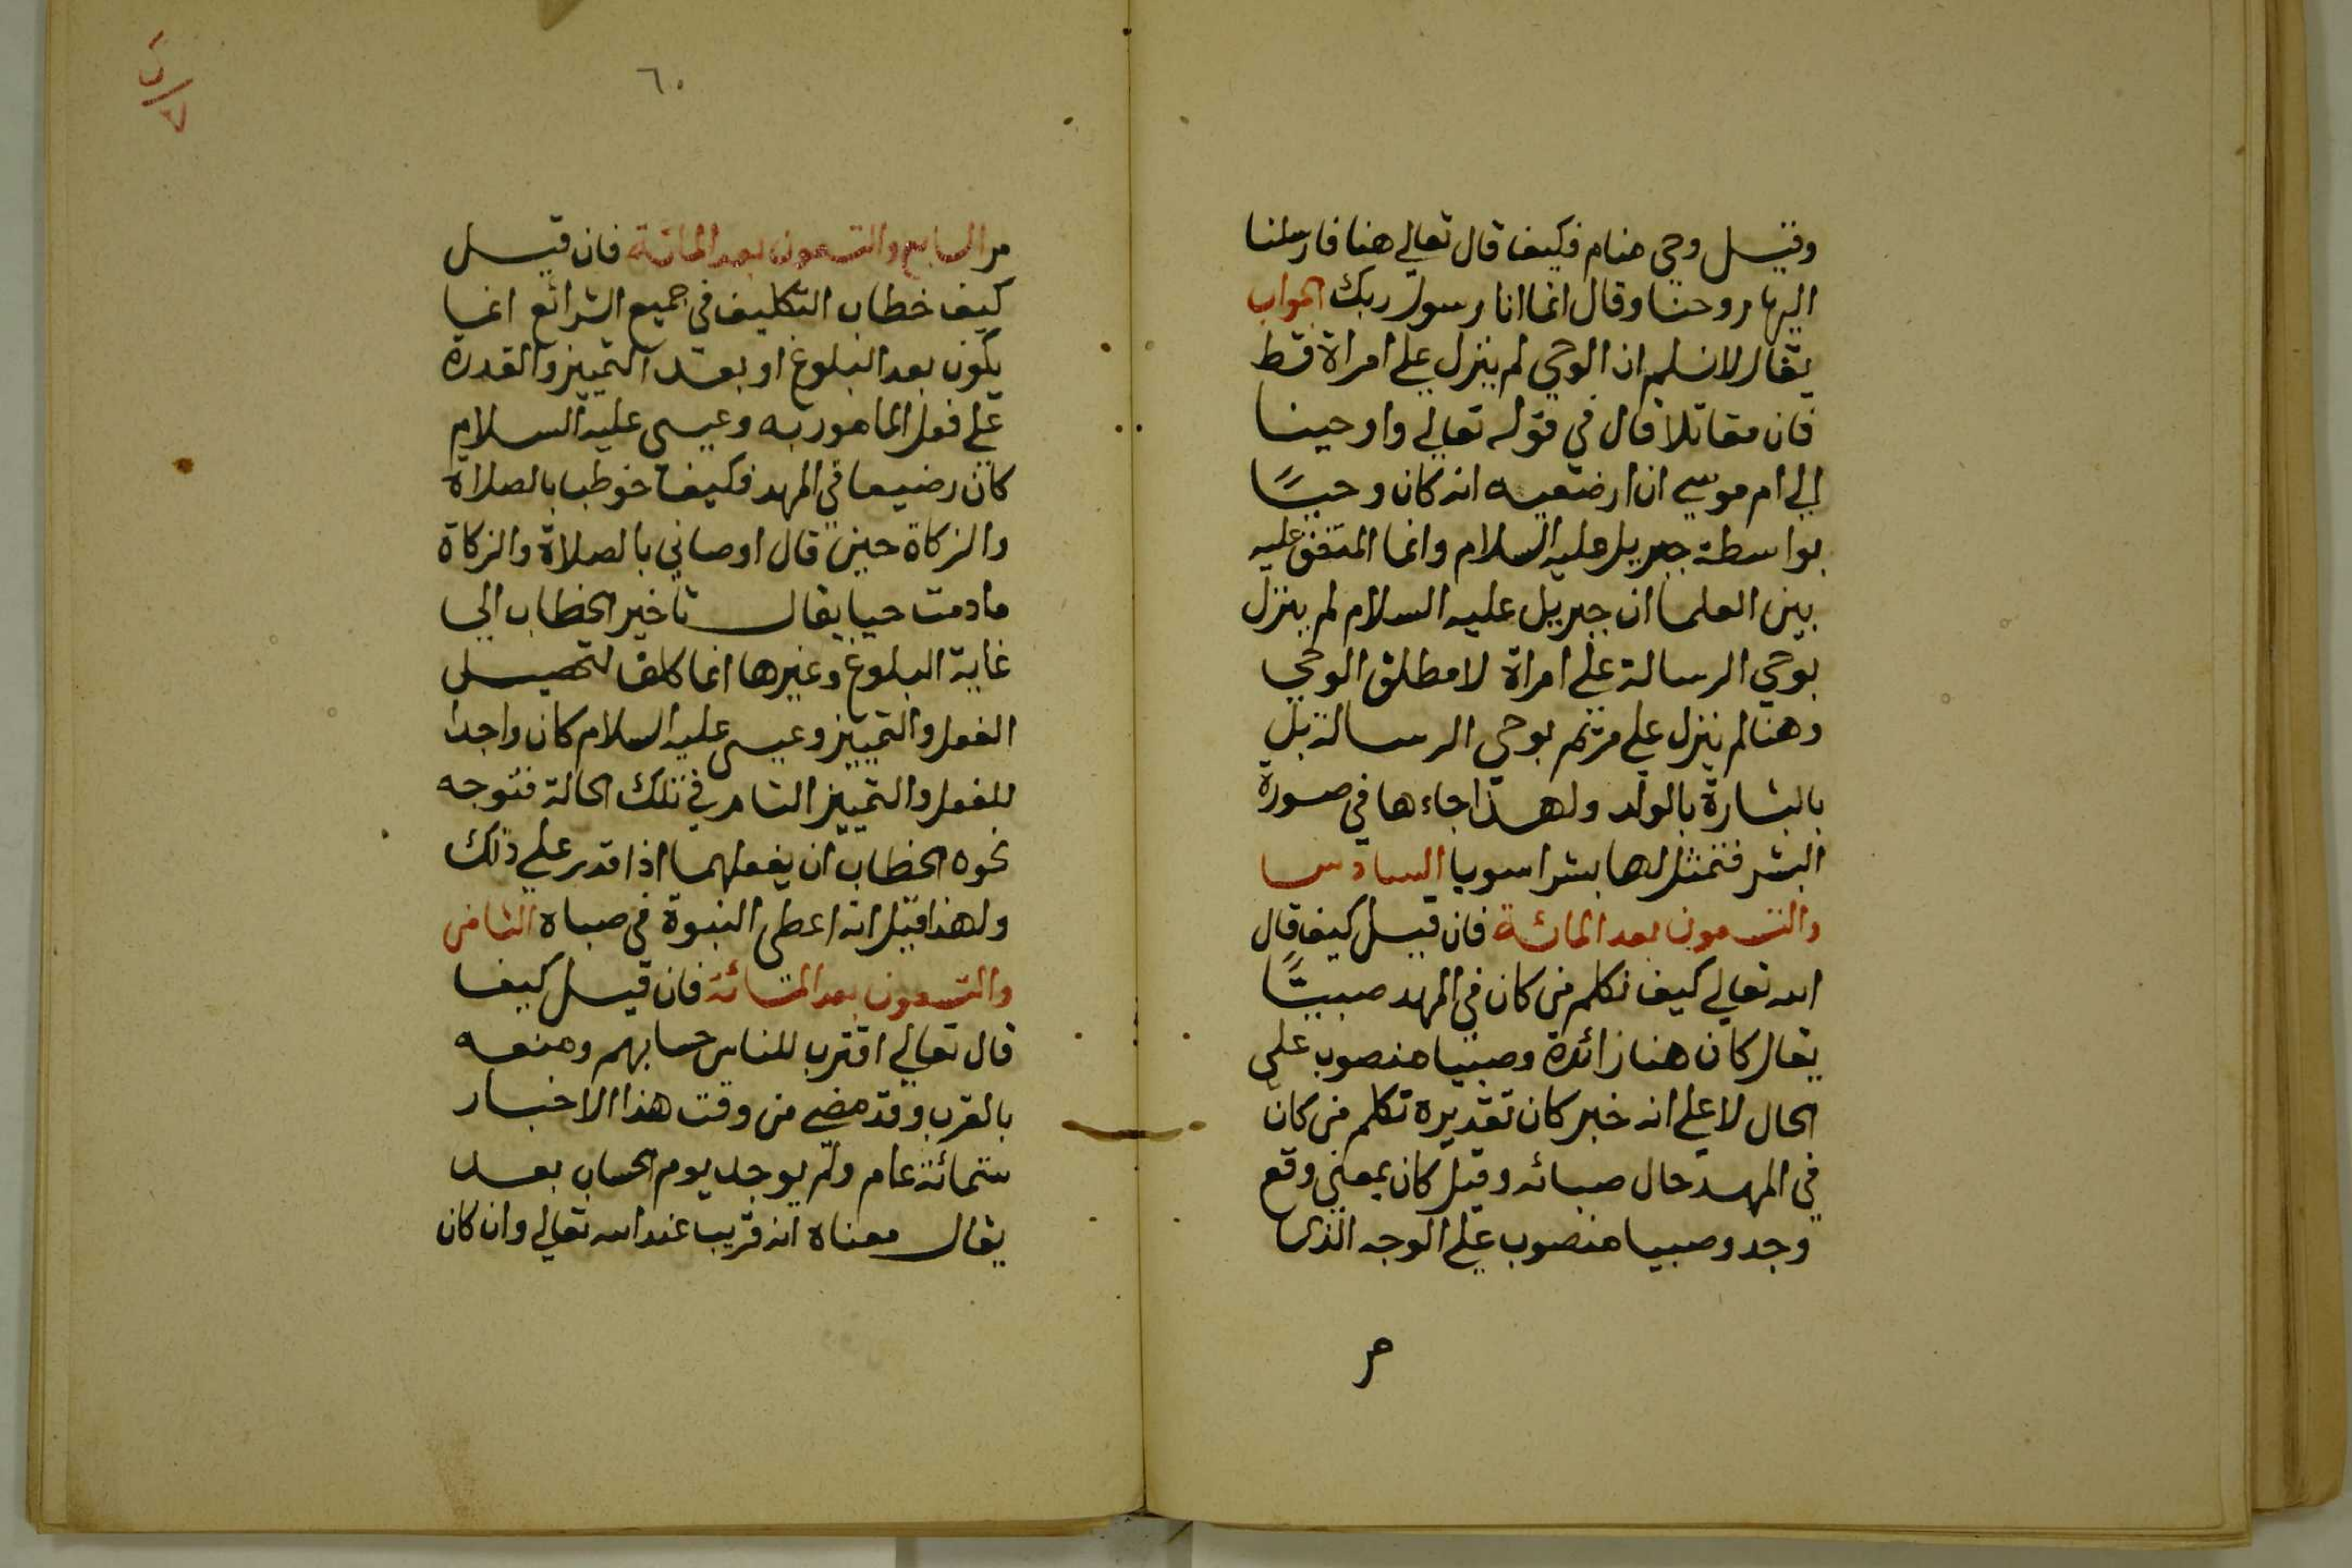 وقيل وحي منام فكيف قال تعالي هنا فارسلنا
اليها روحنا وقال انما انا رسول ربك الجواب
يقال لانسلم ان الوحي لم ينزل علي امراة قط
فان مقاتلا قال في قوله تعالي واوحينا
الي ام موسي ان ارضعيه انه كان وحيًا
بواسطة جبريل عليه السلام وانما المتفق عليه
بين العلما ان جبريل عليه السلام لم ينزل
بوحي الرسالة علي امراة لا مطلق الوحي
وهنا لم ينزل علي مريم بوحي الرسالة بل
بالبشارة بالولد ولهذا جاءها في صورة
البشر فتمثل لها بشرا سويا السادس
والتسعون بعد المائة فان قيل كيف قال
الله تعالي كيف نكلم من كان في المهد صبيًّا
يقال كان هنا زائدة وصبيا منصوب على
الحال لا علي انه خبر كان تقديره نكلم من كان
في المهد حال صبائه وقيل كان بمعني وقع
وجد وصبيا منصوب علي الوجه الذى
مر
٦٠
مر السابع والتسعون بعد المائة فان قيل
كيف خطاب التكليف في جميع الشرائع انما
يكون بعد البلوغ او بعد التمييز والقدرة
علي فعل المامور به وعيسى عليه السلام
كان رضيعا في المهد فكيف خوطب بالصلاة
والزكاة حين قال اوصاني بالصلاة والزكاة
مادمت حيا يقال تاخير الخطاب الي
غاية البلوغ وغيرها انما كلف لتحصيل
الفعل والتمييز وعيسى عليه السلام كان واجدا
للفعل والتمييز التام في تلك الحالة فتوجه
نحوه الخطاب ان يفعلهما اذا قدر علي ذلك
ولهذا قيل انه اعطى النبوة في صباه الثامن
والتسعون بعد المائة فان قيل كيف
قال تعالي اقترب للناس حسابهم ومنعه
بالقرب وقد مضي من وقت هذا الاخبار
ستمائة عام ولم يوجد يوم الحساب بعد
يقال معناه انه قريب عند الله تعالي وان كان